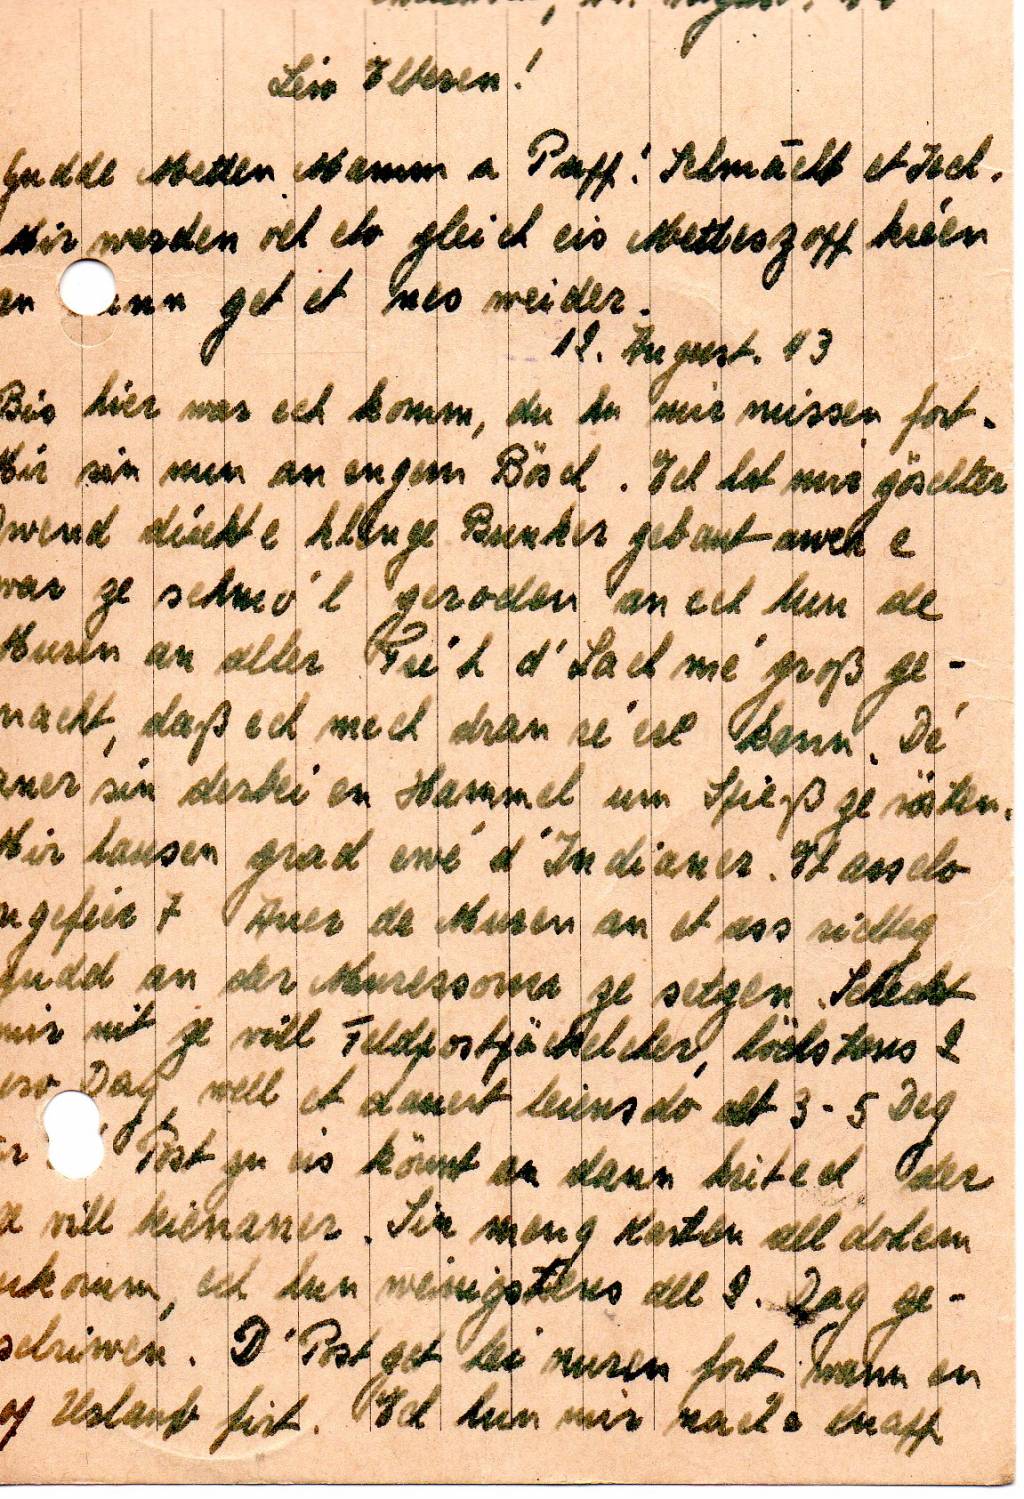 August.
Leiv Elteren!
Gudde Metten Mamm a Papp! Schmächt et Iech.
Mir werden och elo gleich eis Metteszopp kréen
an get et nes weider.
12. August. 43
Bis hier war ech komm, du hu mir missen fort.
Mir sin nun an engem Bösch. Ech hat mir göschter
Owend direkt e klenge Bunker gebaut awer e
war ze schmo'l geroden an ech hun de
Muren an aller Fré'h d'Lach mé groß ge-
macht, daß ech mech dran ré'en kann. Dé
aner sin derbei en Hammel um Spieß ze rösten.
Mir hausen grad ewé d'Indianer. Et ass elo
ngeféir 7 Auer de Muren an et ass richteg
gudd an der Muressonn ze setzen. Scheckt
mir nit ze vill Feldpostpäckelcher, höchstens 2
Dag, well et dauert heiensdo alt 3-5 Deg
Post zu eis könnt an dann kritt ech der
ze vill hienaner. Sin meng Karten all dohem
ukomm, ech hun weinigstens all 2. Dag ge-
schriwen. D'Post get hei nuren fort wann en
op Urlaub fiert. Ech hun mir nach e Knapp